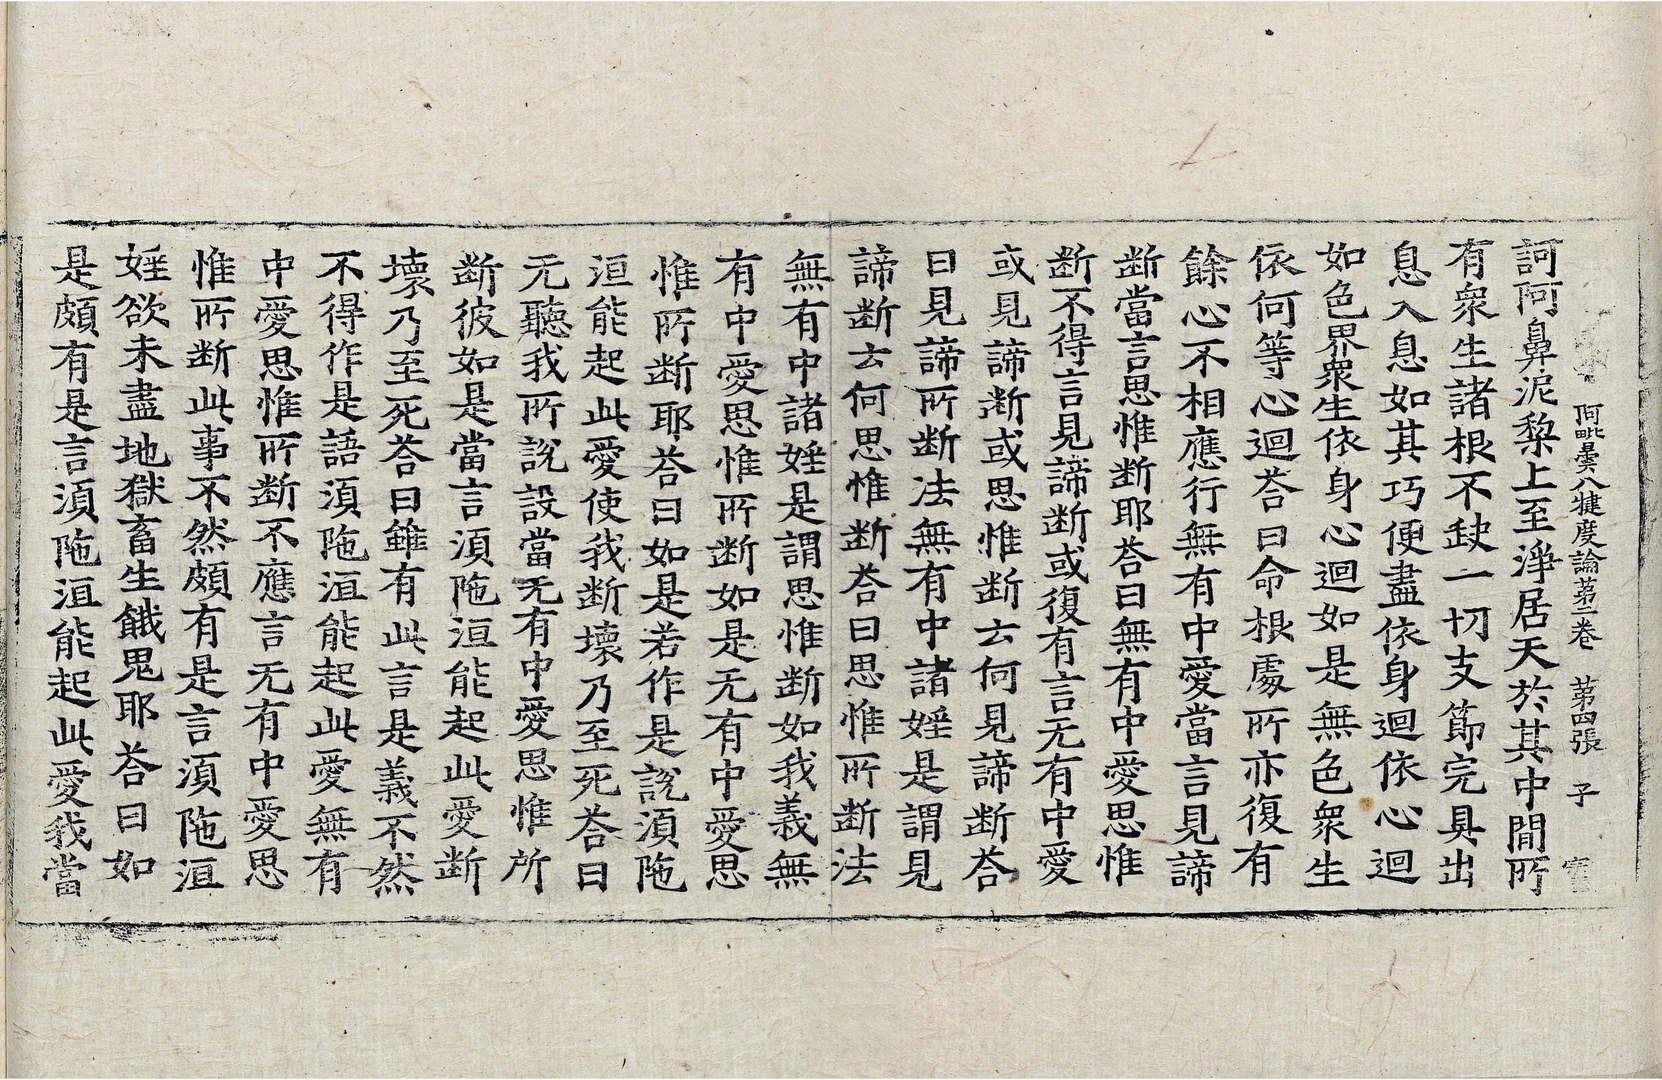 阿毗曇八犍度論第二卷 第四張 子
訶阿鼻泥犁上至淨居天於其中間所
有衆生諸根不缺一切支節完具出
息入息如其巧便盡依身迴依心迴
如色界衆生依身心迴如是無色衆生
依何等心迴荅曰命根處所亦復有
餘心不相應行無有中愛當言見諦
断當言思惟断耶荅曰無有中愛思惟
断不得言見諦断或復有言无有中愛
或見諦断或思惟断云何見諦断荅
曰見諦所断法無有中諸婬是謂見
諦断云何思惟断荅曰思惟所断法
無有中諸婬是謂思惟断如我義無
有中愛思惟所断如是无有中愛思
惟所断耶荅曰如是若作是說湏陁
洹能起此愛使我断壞乃至死荅曰
无聽我所說設當无有中愛思惟所
断彼如是當言湏陁洹能起此愛断
壞乃至死荅曰雖有此言是義不然
不得作是語湏陁洹能起此愛無有
中愛思惟所断不應言无有中愛思
惟所断此事不然頗有是言湏陁洹
婬欲未盡地獄畜生餓鬼耶荅曰如
是頗有是言湏陁洹能起此愛我當